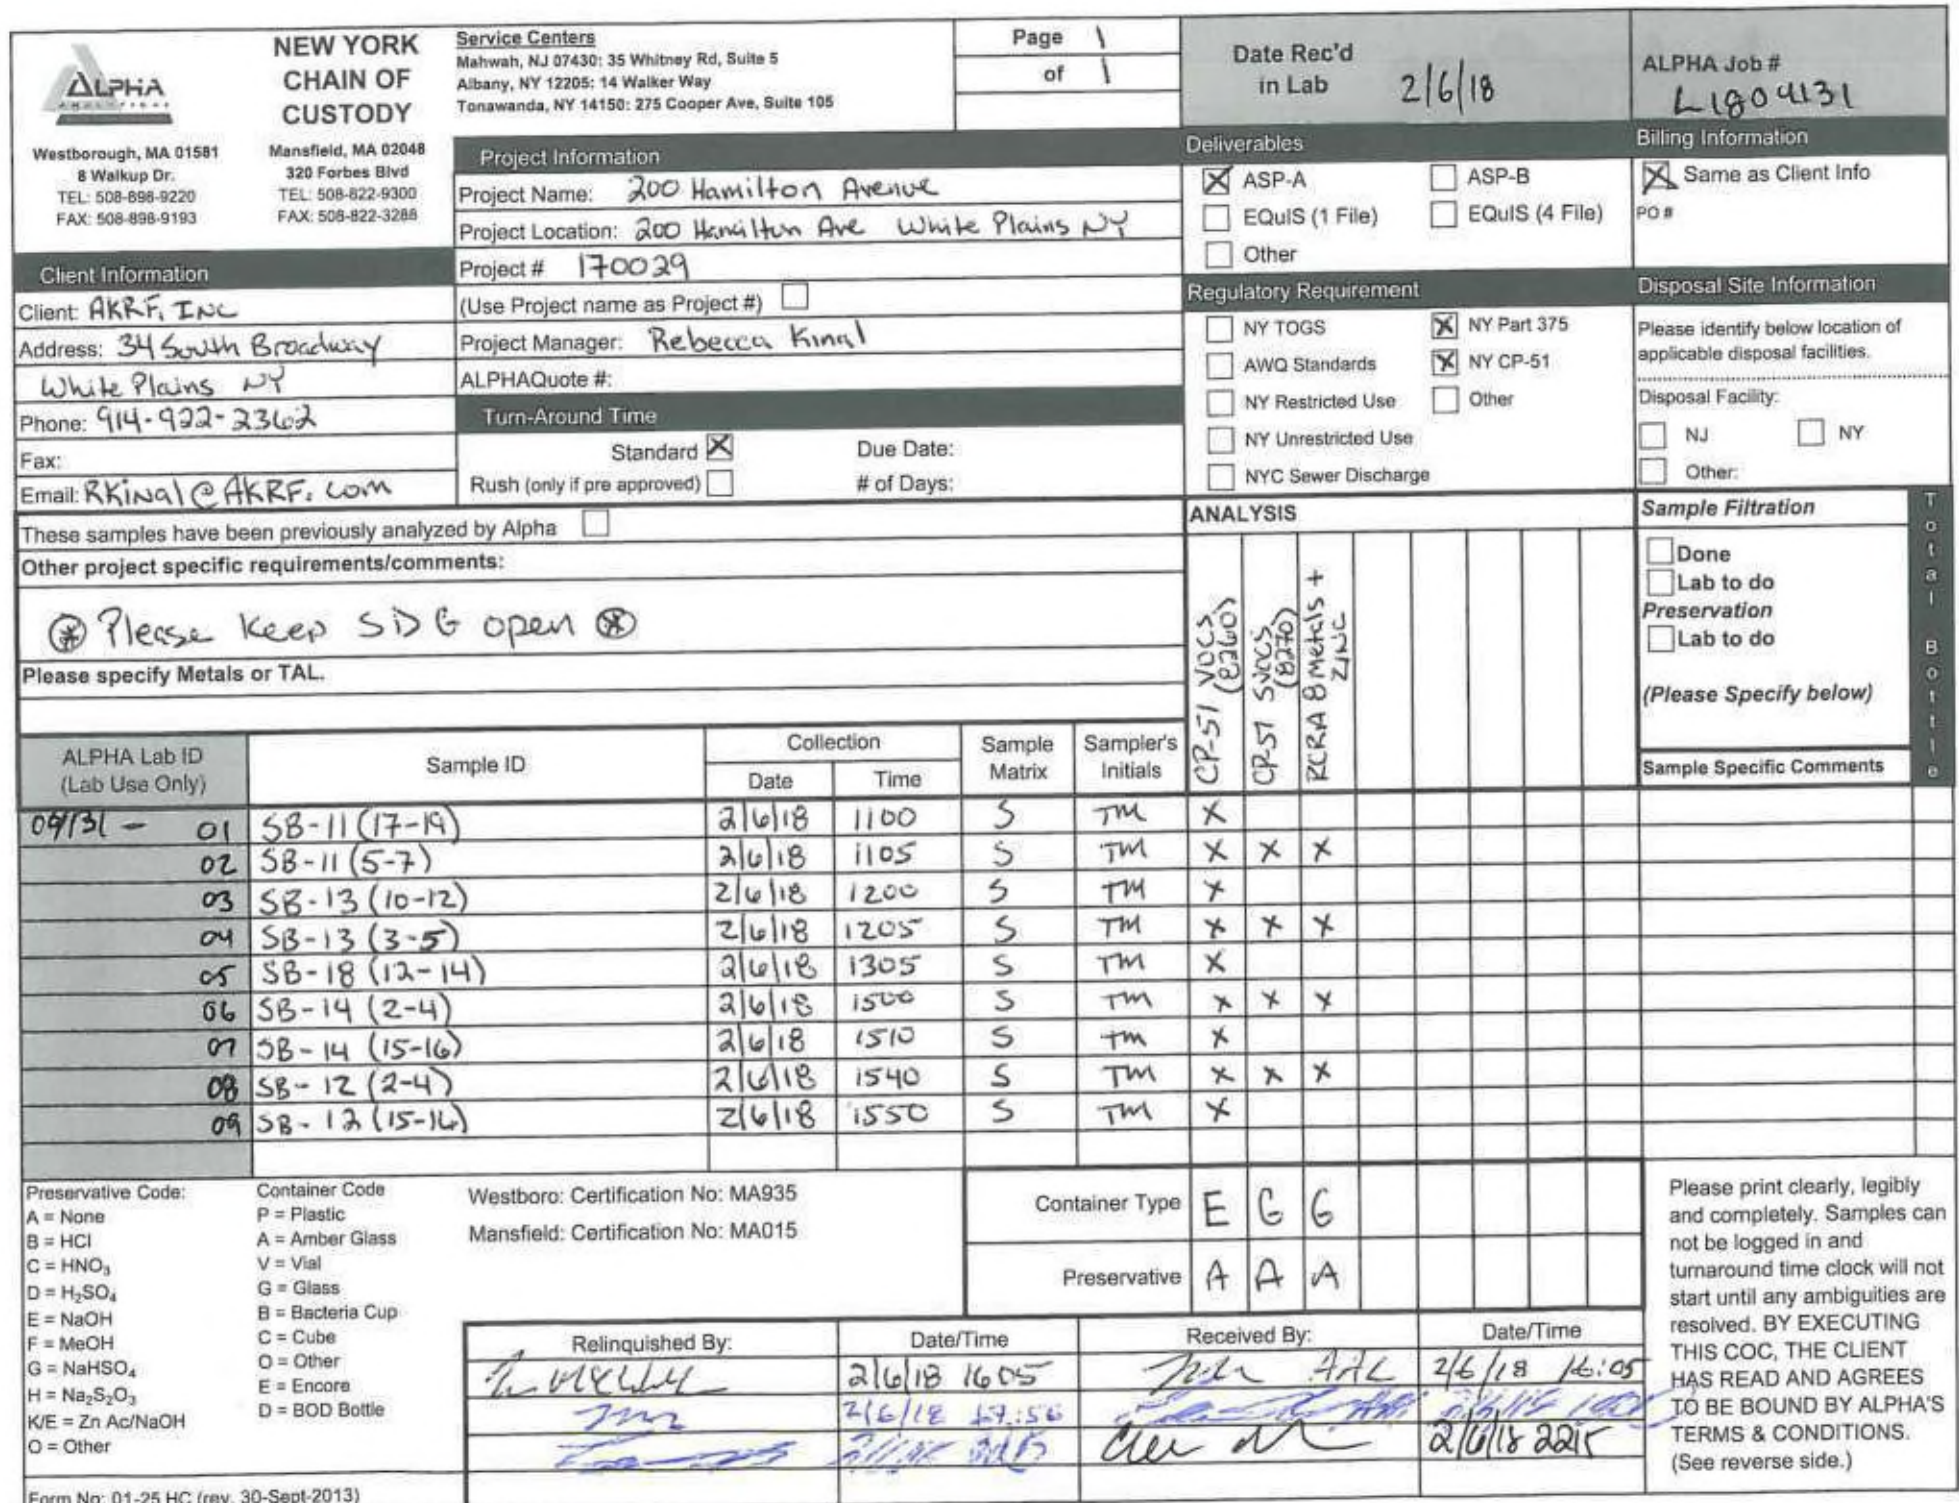 ALPHA
ANALYTICAL
Westborough, MA 01581
8 Walkup Dr.
TEL: 508-898-9220
FAX: 508-898-9193
NEW YORK
CHAIN OF
CUSTODY
Mansfield, MA 02048
320 Forbes Blvd
TEL: 508-822-9300
FAX: 508-822-3288
Service Centers
Mahwah, NJ 07430: 35 Whitney Rd, Suite 5
Albany, NY 12205: 14 Walker Way
Tonawanda, NY 14150: 275 Cooper Ave, Suite 105
Page 1
of 1
Date Rec'd
in Lab 2/6/18
ALPHA Job #
L1804131
Project Information
Project Name: 200 Hamilton Avenue
Project Location: 200 Hamilton Ave White Plains NY
Project # 170029
(Use Project name as Project #)
Project Manager: Rebecca Kinal
ALPHAQuote #:
Client Information
Client: AKRF, INC
Address: 34 South Broadway
White Plains NY
Phone: 914-922-2362
Fax:
Email: RKinal@AKRF.com
Turn-Around Time
Standard X Due Date:
Rush (only if pre approved) # of Days:
Deliverables
X ASP-A ASP-B
EQuIS (1 File) EQuIS (4 File)
Other
Billing Information
X Same as Client Info
PO #
Regulatory Requirement
NY TOGS X NY Part 375
AWQ Standards X NY CP-51
NY Restricted Use Other
NY Unrestricted Use
NYC Sewer Discharge
Disposal Site Information
Please identify below location of
applicable disposal facilities.
Disposal Facility:
NJ NY
Other:
These samples have been previously analyzed by Alpha
Other project specific requirements/comments:
* Please Keep SDG open *
Please specify Metals or TAL.
ANALYSIS
CP-51 VOCS (8260)
CP-51 SVOCS (8270)
RCRA 8 metals + ZINC
Sample Filtration
Done
Lab to do
Preservation
Lab to do
(Please Specify below)
Total Bottle
ALPHA Lab ID
(Lab Use Only)
Sample ID
Collection
Date Time
Sample
Matrix
Sampler's
Initials
Sample Specific Comments
04131 - 01 SB-11 (17-19) 2/6/18 1100 S TM X
02 SB-11 (5-7) 2/6/18 1105 S TM X X X
03 SB-13 (10-12) 2/6/18 1200 S TM X
04 SB-13 (3-5) 2/6/18 1205 S TM X X X
05 SB-18 (12-14) 2/6/18 1305 S TM X
06 SB-14 (2-4) 2/6/18 1500 S TM X X X
07 SB-14 (15-16) 2/6/18 1510 S TM X
08 SB-12 (2-4) 2/6/18 1540 S TM X X X
09 SB-12 (15-16) 2/6/18 1550 S TM X
Preservative Code:
A = None
B = HCl
C = HNO₃
D = H₂SO₄
E = NaOH
F = MeOH
G = NaHSO₄
H = Na₂S₂O₃
K/E = Zn Ac/NaOH
O = Other
Container Code
P = Plastic
A = Amber Glass
V = Vial
G = Glass
B = Bacteria Cup
C = Cube
O = Other
E = Encore
D = BOD Bottle
Westboro: Certification No: MA935
Mansfield: Certification No: MA015
Container Type E G G
Preservative A A A
Relinquished By: Date/Time Received By: Date/Time
2/6/18 1605 AAL 2/6/18 16:05
2/6/18 17:56
2/6/18 2215
Please print clearly, legibly
and completely. Samples can
not be logged in and
turnaround time clock will not
start until any ambiguities are
resolved. BY EXECUTING
THIS COC, THE CLIENT
HAS READ AND AGREES
TO BE BOUND BY ALPHA'S
TERMS & CONDITIONS.
(See reverse side.)
Form No: 01-25 HC (rev. 30-Sept-2013)